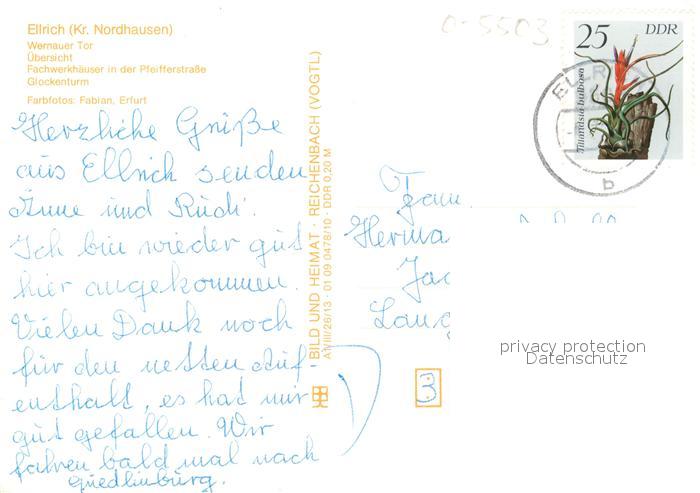 Ellrich (Kr. Nordhausen)
Wernauer Tor
Übersicht
Fachwerkhäuser in der Pfeifferstraße
Glockenturm
Farbfotos: Fabian, Erfurt
Herzliche Grüße
aus Ellrich senden
Änne und Rudi.
Ich bin wieder gut
hier angekommen.
Vielen Dank noch
für den netten Auf-
enthalt, es hat mir
gut gefallen. Wir
fahren bald mal nach
Quedlinburg.
BILD UND HEIMAT · REICHENBACH (VOGTL)
A1/III/26/13 · 01 09 0478/10 · DDR 0,20 M
0-5503
25 DDR
Tillandsia bulbosa
ELLR
b
Fam
Herma
Lang
3
privacy protection
Datenschutz